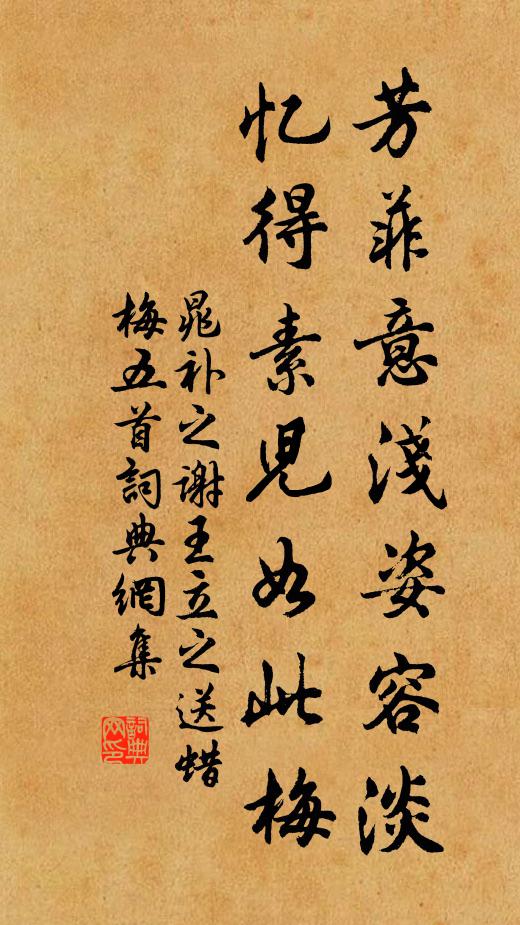 芳菲意淺姿容淡
忆得素児如此梅
晁补之谢王立之送蜡
梅五首詞典網集
詞典
网印